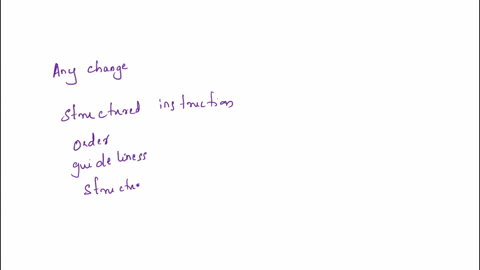 Any change
structured instruction
order
guideliness
structu